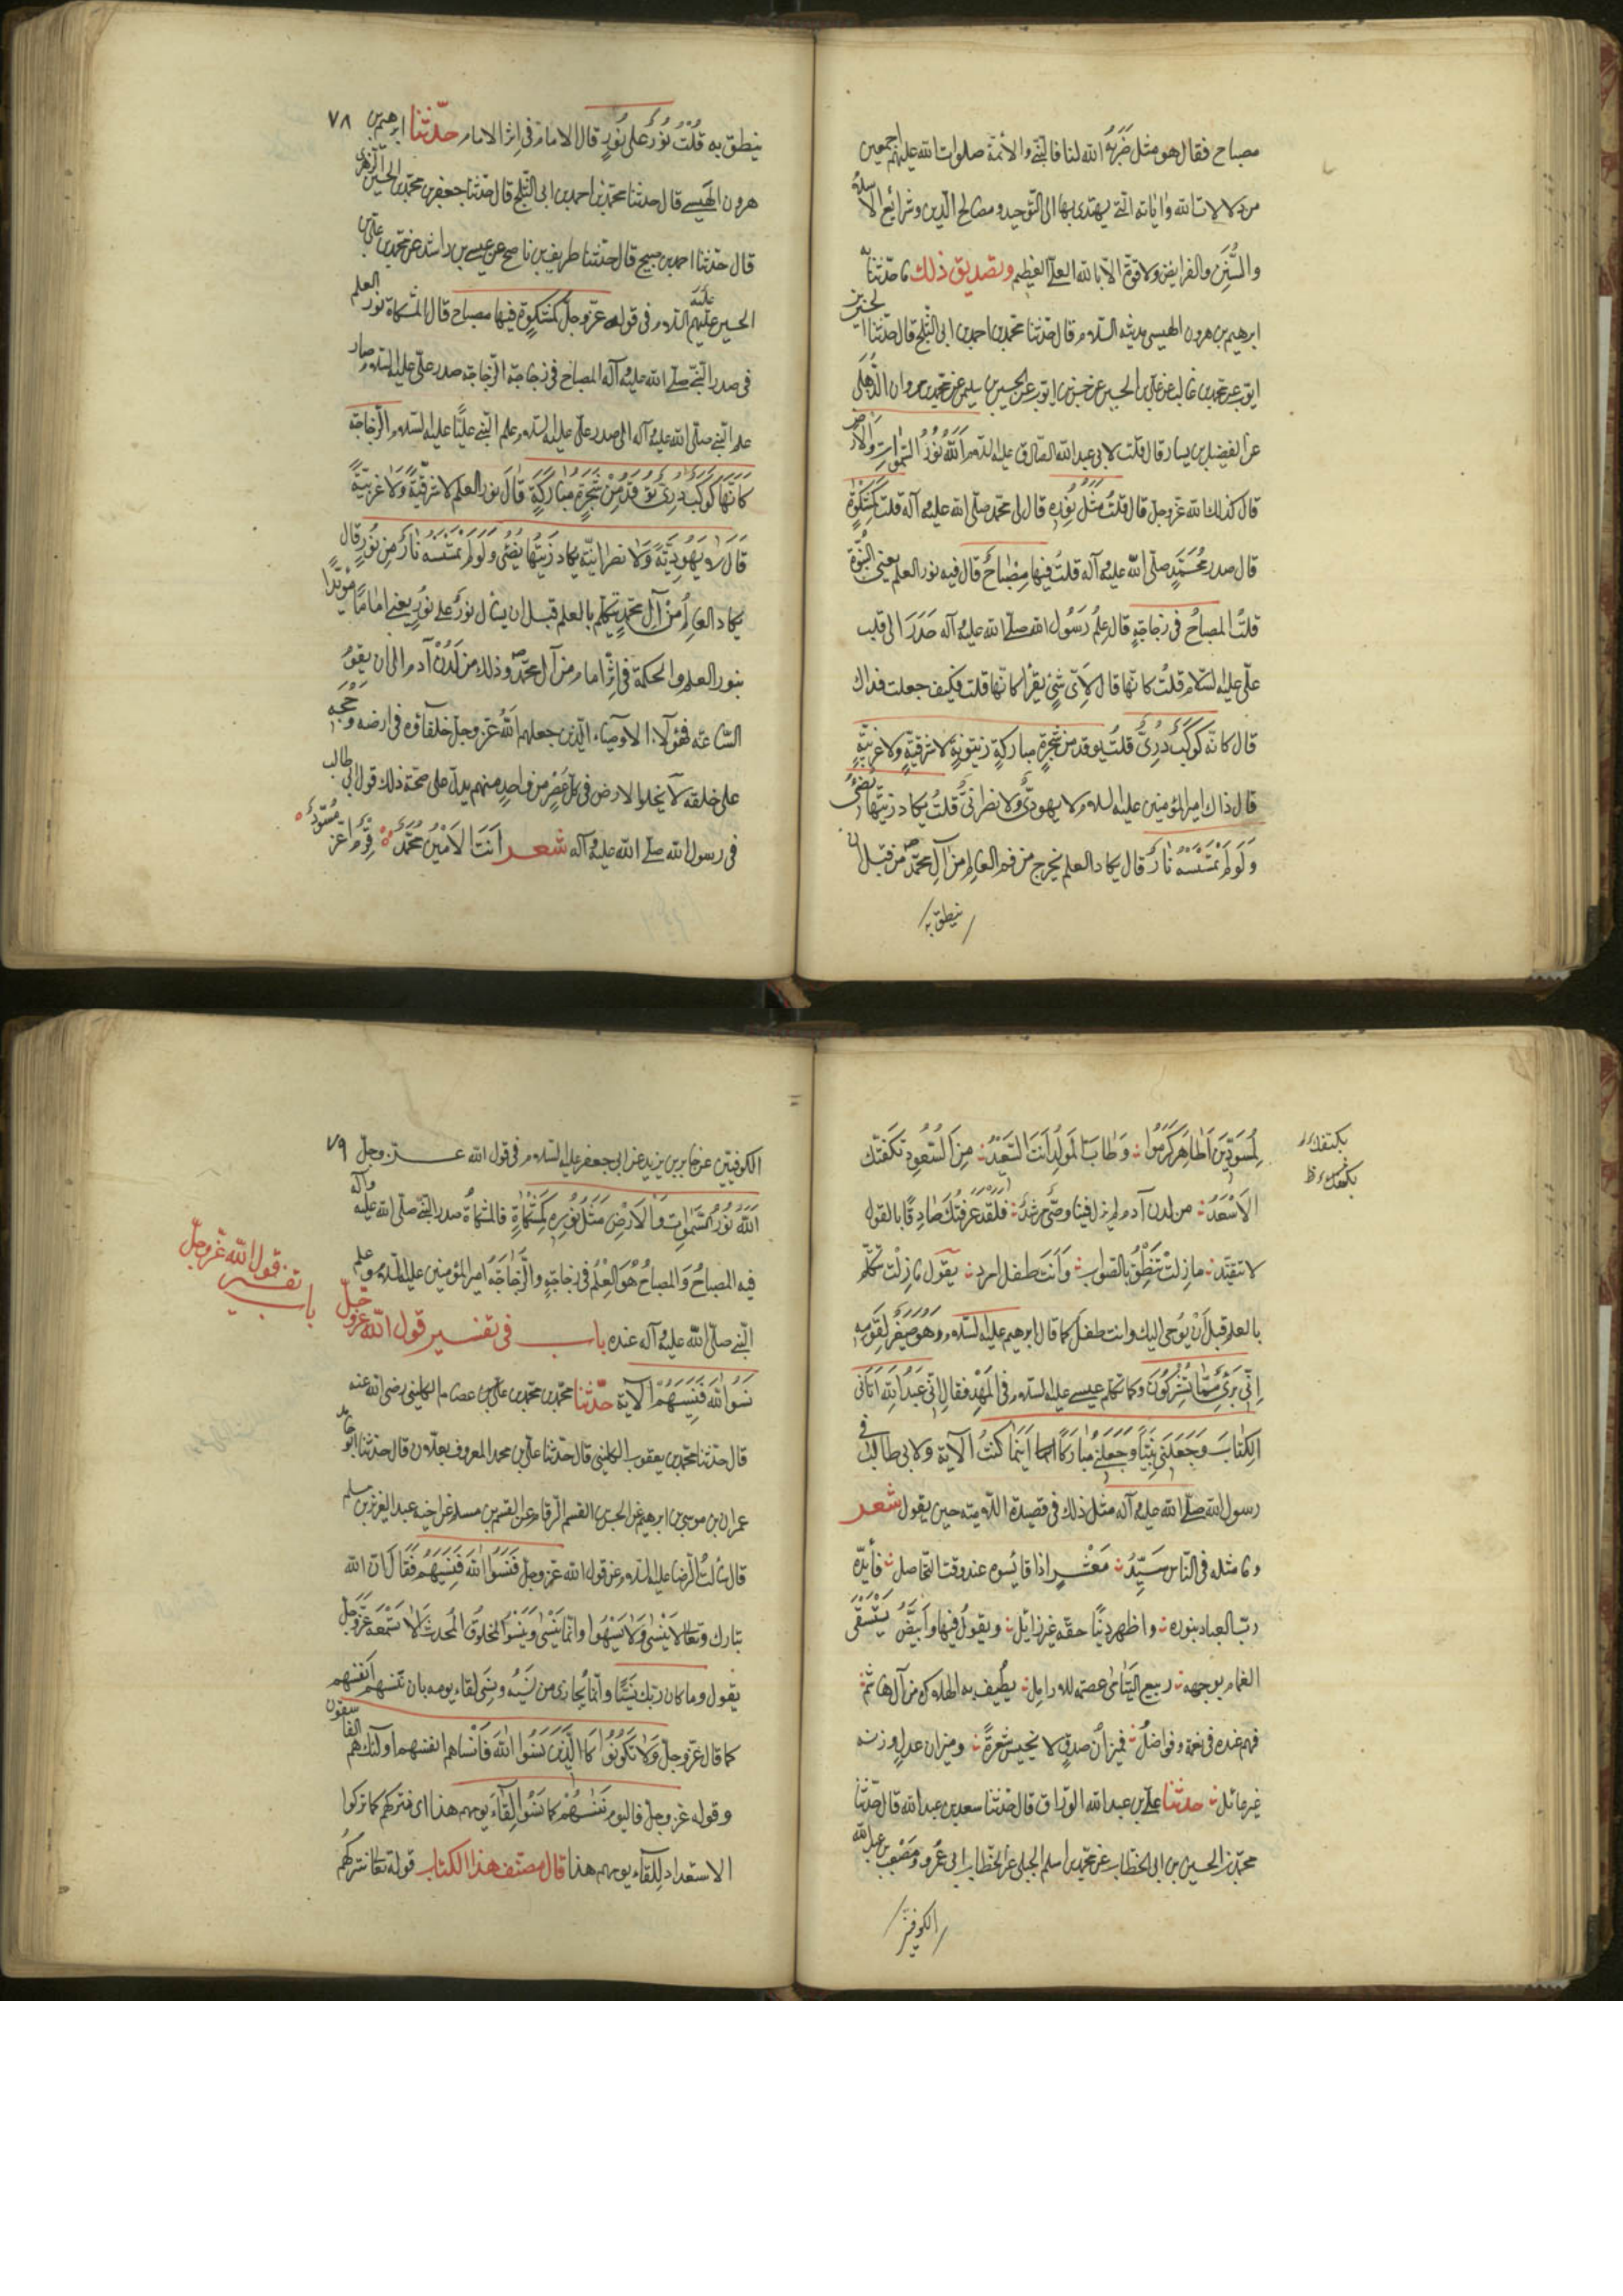 مصباح فقال هو مثل ضَرَبَهُ الله لنا فالنبي والأئمة صلوات الله عليهم اجمعين
من دلالات الله واياته التي يهتدى بها الى التوحيد ومصالح الدين وشرائع الاسلام
والسُّنن والفرايض ولا قوة الا بالله العلي العظيم وتصديق ذلك ما حدثنا به
ابرهيم بن هرون الهيسي بمدينة السلام قال حدثنا محمد بن احمد بن ابي الثلج قال حدثنا الحسين بن
ايوب عن محمد بن غالب عن علي بن الحسين عن حسن بن ايوب عن الحسين بن سليمن عن محمد بن مروان الذهلي
عن الفضيل بن يسار قال قلت لابي عبد الله الصادق عليه السلام اَللهُ نُورُ السَّمٰوَاتِ وَالْاَرْضِ
قال كذلك الله عز وجل قال قلتُ مَثَلُ نُورِهِ قال لي محمد صلى الله عليه وآله قلت كَمِشْكٰوةٍ
قال صدر مُحَمَّدٍ صلى الله عليه وآله قلتُ فِيهَا مِصْبَاحٌ قال فيه نور العلم يعني النبُوّة
قلتُ المصباحُ في زجاجةٍ قال عِلمُ رَسُول الله صلى الله عليه وآله صَدَرَ الى قلب
علي عليه السلام قلتُ كانّها قال لِاَيّ شَيْءٍ يقرأ كانّها قلت فكيف جعلت فداك
قال كانّه كَوكَبٌ دُرِّيٌّ قلتُ يوقد من شجرةٍ مباركةٍ زيتونةٍ لا شرقيةٍ ولا غربيّةٍ
قال ذاك امير المؤمنين عليه السلام لا يهوديٌّ ولا نصرانيٌّ قلتُ يكاد زيتُها يُضيءُ
وَلَوْ لَمْ تَمْسَسْهُ نَارٌ قال يكاد العلم يخرج من فم العالم من آلِ محمد من قبل ان
ينطق به
٧٨
ينطق به قُلْتُ نُورٌ على نُورٍ قال الامام في اِثر الامام حدّثنا ابرهيم بن
هرون الهَيسي قال حدثنا محمد بن احمد بن ابي الثلج قال حدثنا جعفر بن محمد بن الحسين الزهري
قال حدثنا احمد بن صبيح قال حدثنا ظريف بن ناصح عن عيسى بن راشد عن محمد بن علي بن
الحسين عليهم السلام في قوله عزّ وجلّ كَمِشْكٰوةٍ فيها مصباح قال المشكاة نور العلم
في صدر النبي صلى الله عليه وآله المصباح في زجاجة الزجاجة صدر علي عليه السلام صار
علم النبي صلى الله عليه وآله الى صدر علي عليه السلام علم النبي عليًّا عليه السلام الزجاجة
كَاَنَّهَا كَوْكَبٌ دُرِّيٌّ يُوقَدُ مِنْ شَجَرَةٍ مُبَارَكَةٍ قال نور العلم لا شَرْقِيَّةٍ وَلَا غَرْبِيَّةٍ
قال لا يَهُودِيَّةٍ وَلا نصرانيّة يكاد زَيتُها يُضيءُ وَلَوْ لَمْ تَمْسَسْهُ نَارٌ مِن نُورٍ قال
يكاد العالِمُ مِنْ آلِ محمدٍ يتكلم بالعلم قبل ان يسأل نورٌ على نُورٍ يعني اماما مؤيّدًا
بنور العلم والحكمة في اِثْرِ امام من آل محمد وذلك من لَدُنْ آدم الى ان يقوم
السّاعة فهؤلاء الاوصياء الذين جعلهم اَللهُ عز وجل خلفاؤه في ارضه وحُجَجه
على خلقه لا يخلوا الارض في كلّ عَصْرٍ من واحدٍ منهم يدل على صحة ذلك قول ابي طالب
في رسول الله صلى الله عليه وآله شعر اَنتَ الاَمينُ محمدٌ قَرْمٌ اغرّ مُسَوَّدٌ
لِمُسَوَّدينَ اَطاهِرَ كَرُمُوا وَطَابَ المَولِدُ اَنتَ السَّعَدُ مِنَ السُّعُودِ تكنّفتك
الاَسْعَدُ من لدن آدم لم يزل فينا وصيٌّ مرشدٌ فَلَقَدْ عَرَفتُكَ صادِقًا بالقول
لا تفنّد ما زِلتَ تَنطِقُ بالصواب وَاَنتَ طفل امرد يقول ما زِلتَ تتكلّم
بالعلم قبل اَنْ يُوحى اليك وانت طفلٌ كما قال ابرهيم عليه السلام وهو صغيرٌ لقَومِهِ
اِنِّي بَريءٌ مِمَّا تُشْرِكُونَ وكما تكلم عيسى عليه السلام في المَهْدِ فقال اِنِّي عَبْدُ اللهِ اٰتَانِيَ
الكِتَابَ وَجَعَلَنِي نَبِيًّا وَجَعَلَنِي مُبَارَكًا اَيْنَمَا كُنْتُ الآية ولابي طالب في
رسول الله صلى الله عليه وآله مثل ذلك في قصيدة اللامية حين يقول شعر
وما مثله في الناس سَيِّدُ مَعْشَرٍ اذا قايسوه عند وقت التحاصل فأيّده
ربّ العباد بنوره واظهر دينًا حقّه غير زائل ويقول فيها وَاَبيَضُ يُسْتَسقى
الغمام بوجهه ربيع اليتامى عصمة للارامل يطيف به الهلاك من آل هاشم
فهم عنده في نعمة وفواضل وميزانُ صدقٍ لا يخيس شعرةً وميزان عدلٍ وزنه
غير عائل حدثنا علي بن عبد الله الورّاق قال حدثنا سعد بن عبد الله قال حدثنا
محمد بن الحسين بن ابي الخطاب عن محمد بن اسلم الجبلي عن الخطاب ابي عمرو ومصعب بن عبد الله
الكوفيين
٧٩
الكوفيّين عن جابر بن يزيد عن ابي جعفر عليه السلام في قول الله عز وجلّ
اَللهُ نُورُ السَّمٰوَاتِ وَالْاَرْضِ مَثَلُ نُورِهِ كَمِشْكٰاةٍ فالمشكاةُ صدر النبي صلى الله عليه وآله
فيه المصباحُ وَالمصباحُ هُوَ العِلْمُ في زجاجةٍ والزُّجَاجَةُ امير المؤمنين عليه السلام وعلم
النبي صلى الله عليه وآله عنده باب في تفسير قول الله عز وجلّ
باب تفسير قول الله عز وجل
نَسُوا اللهَ فَنَسِيَهُمْ الآية حدّثنا محمد بن محمد بن علي بن عصام الكليني رضي الله عنه
قال حدثنا محمد بن يعقوب الكليني قال حدثنا علي بن محمد المعروف بعلان قال حدثنا ابو حامد
عمران بن موسى بن ابرهيم عن الحسن القسم الرقام عن القسم بن مسلم عن اخيه عبد العزيز بن مسلم
قال سألتُ الرضا عليه السلام عن قول الله عز وجل فَنَسُوا اللهَ فَنَسِيَهُمْ فَقَالَ ان الله
تبارك وتعالى لا يَنْسى وَلا يَسْهُوا وانّما يَنْسٰى وَيَسْهُوا المخلوقُ المُحدث اَلَا تَسْمَعُه عَزَّ وَجَلَّ
يقول وما كان ربّك نَسِيًّا وانّما يُجازى من نَسِيَهُ ونَسِيَ لقاء يومه بان ينسيهم اَنفسهم
كما قال عز وجل وَلَا تَكُونُوا كَالَّذِينَ نَسُوا اللهَ فَاَنْسٰاهم انفسهم اولئك هم الفاسقون
وقوله عز وجل فاليوم نَنسٰهُمْ كما نَسُوا لِقَاءَ يومهم هذا اى نتركهم كما تركوا
الاستعداد لِلقَاء يومهم هذا قال مصنّف هذا الكتاب قوله تعالى نتركهُم